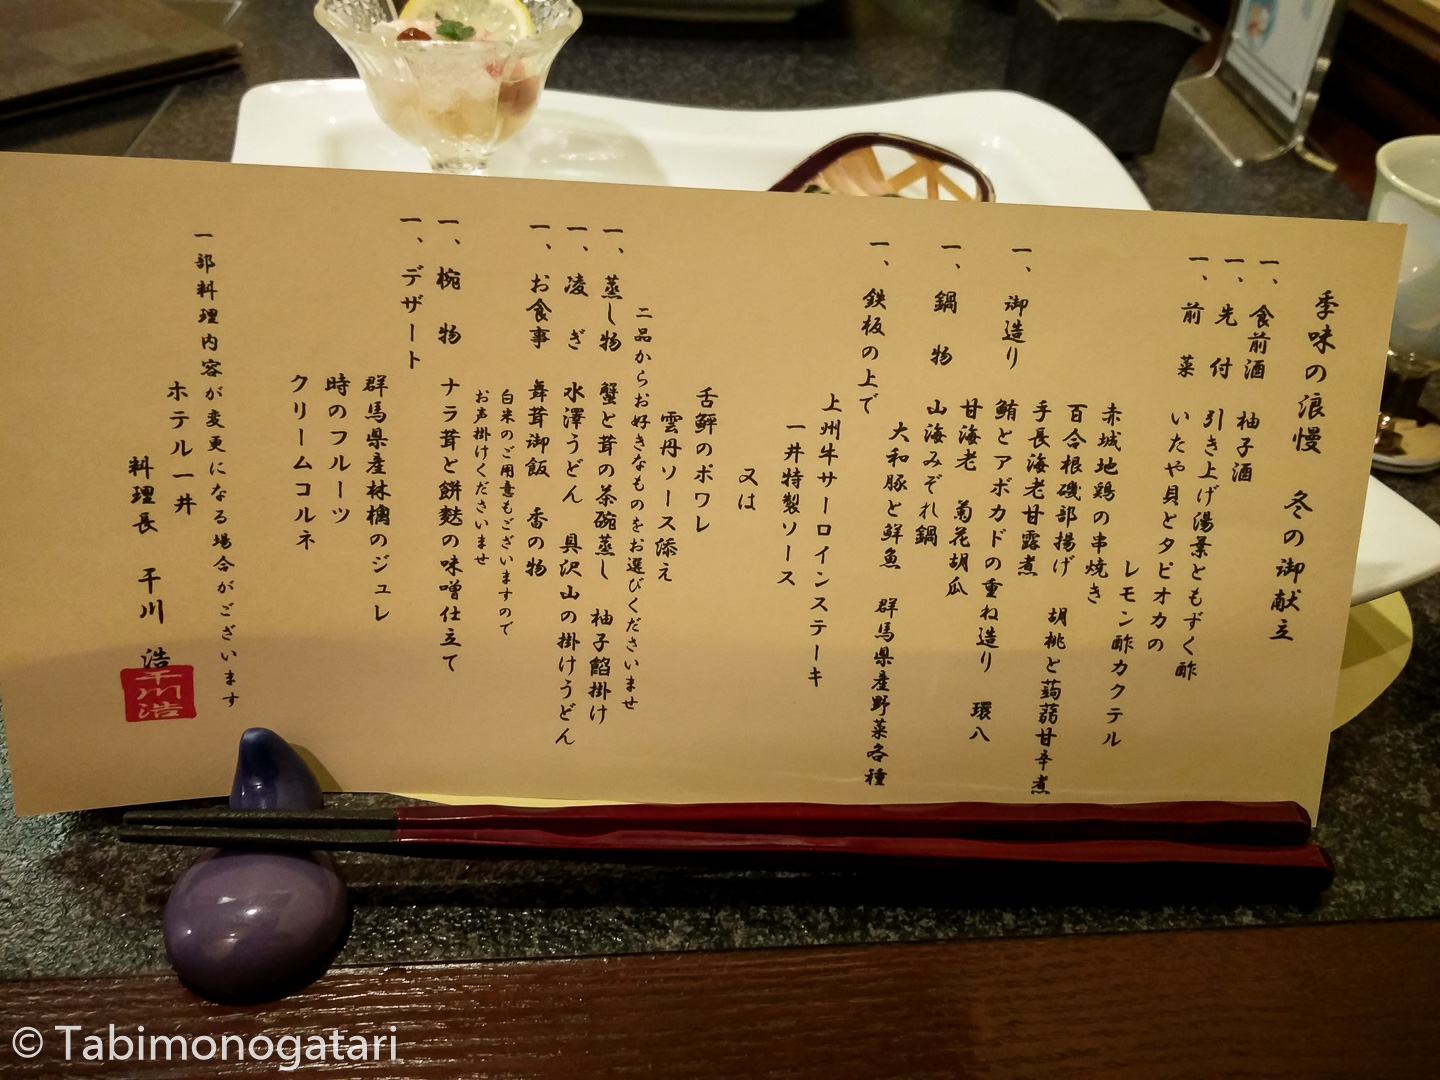 季味の浪慢 冬の御献立
一、食前酒 柚子酒
一、先付 引き上げ湯葉ともずく酢
一、前菜 いたや貝とタピオカの
レモン酢カクテル
赤城地鶏の串焼き
百合根磯部揚げ 胡桃と蒟蒻甘辛煮
手長海老甘露煮
一、御造り 鮪とアボカドの重ね造り 環八
甘海老 菊花胡瓜
一、鍋物 山海みぞれ鍋
大和豚と鮮魚 群馬県産野菜各種
一、鉄板の上で
上州牛サーロインステーキ
一井特製ソース
又は
舌鮃のポワレ
雲丹ソース添え
二品からお好きなものをお選びくださいませ
一、蒸し物 蟹と茸の茶碗蒸し 柚子餡掛け
一、凌ぎ 水澤うどん 具沢山の掛けうどん
一、お食事 舞茸御飯 香の物
白米のご用意もございますので
お声掛けくださいませ
一、椀物 ナラ茸と餅麩の味噌仕立て
一、デザート
群馬県産林檎のジュレ
時のフルーツ
クリームコルネ
一部料理内容が変更になる場合がございます
ホテル一井
料理長 千川 浩
千川浩
© Tabimonogatari